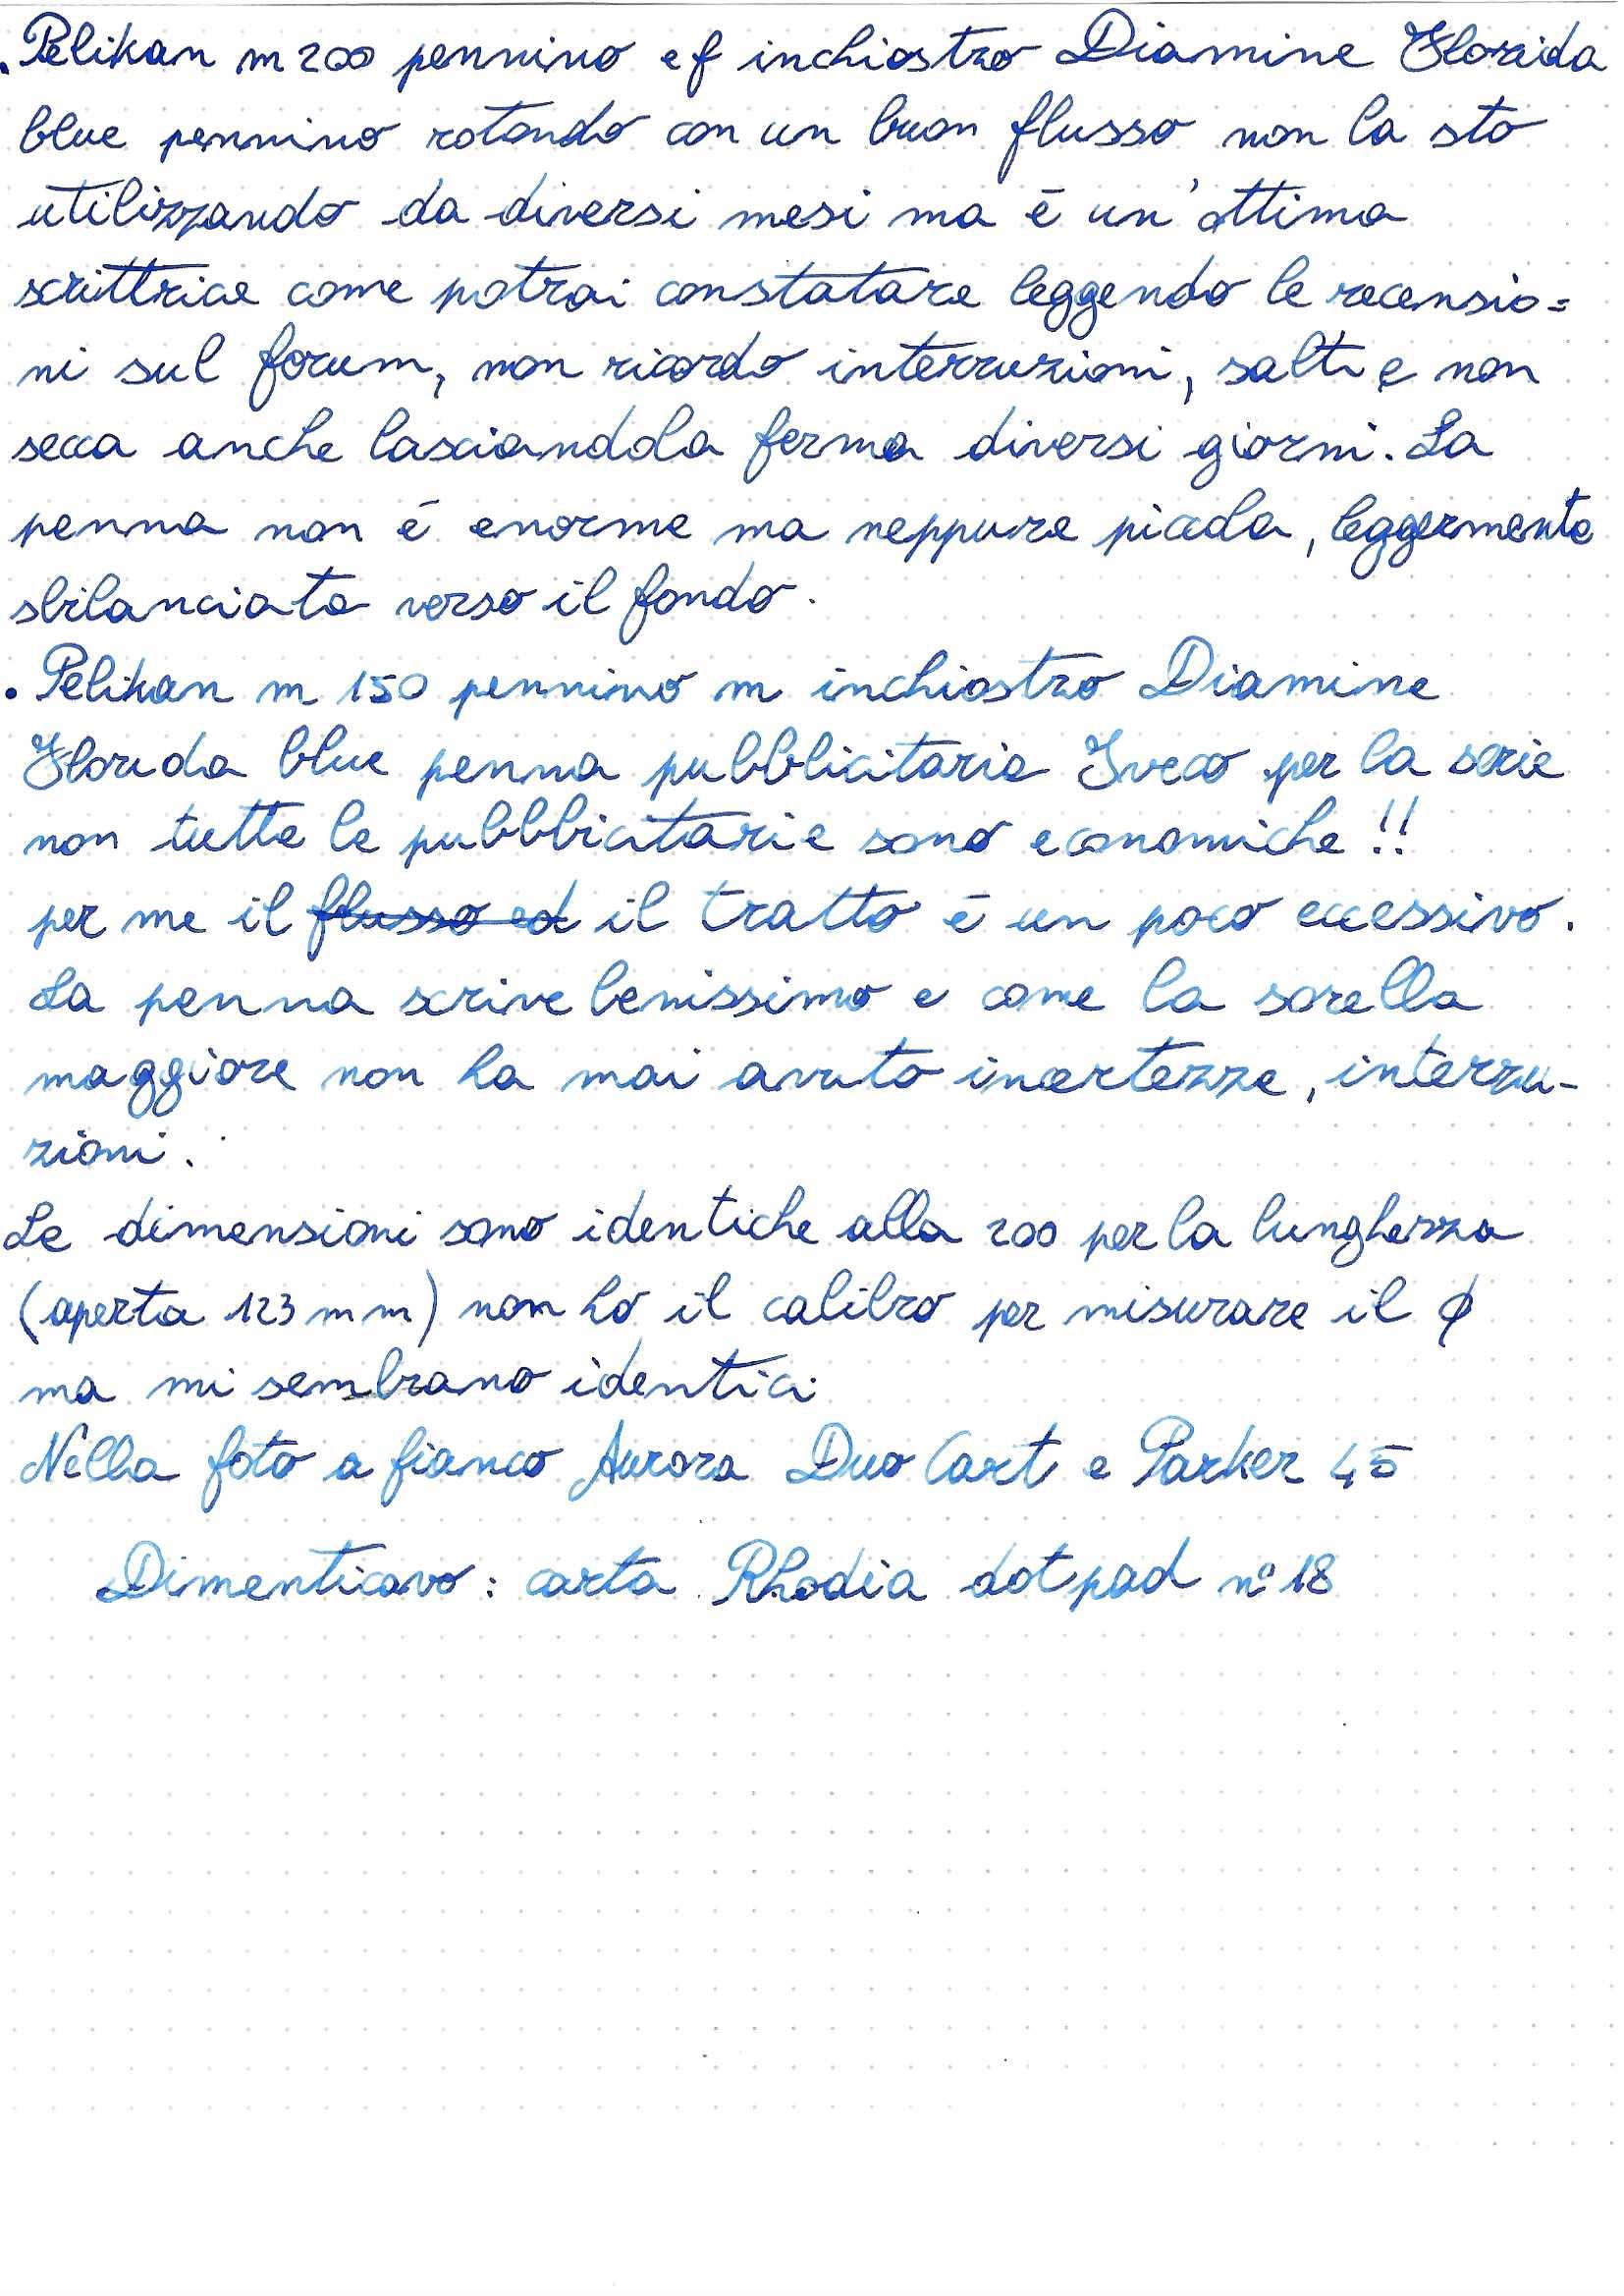 . Pelikan m 200 pennino ef inchiostro Diamine Florida
blue pennino rotondo con un buon flusso non la sto
utilizzando da diversi mesi ma è un'ottima
scrittrice come potrai constatare leggendo le recensio=
ni sul forum, non ricordo interruzioni, salti e non
secca anche lasciandola ferma diversi giorni. La
penna non è enorme ma neppure piccola, leggermente
sbilanciata verso il fondo.
. Pelikan m 150 pennino m inchiostro Diamine
Florida blue penna pubblicitaria Iveco per la serie
non tutte le pubblicitarie sono economiche !!
per me il flusso ed il tratto è un poco eccessivo.
La penna scrive benissimo e come la sorella
maggiore non ha mai avuto incertezze, interru-
zioni.
Le dimensioni sono identiche alla 200 per la lunghezza
(aperta 123 mm) non ho il calibro per misurare il ϕ
ma mi sembrano identici
Nella foto a fianco Aurora Duo Cart e Parker 45
Dimenticavo : carta Rhodia dot pad n° 18